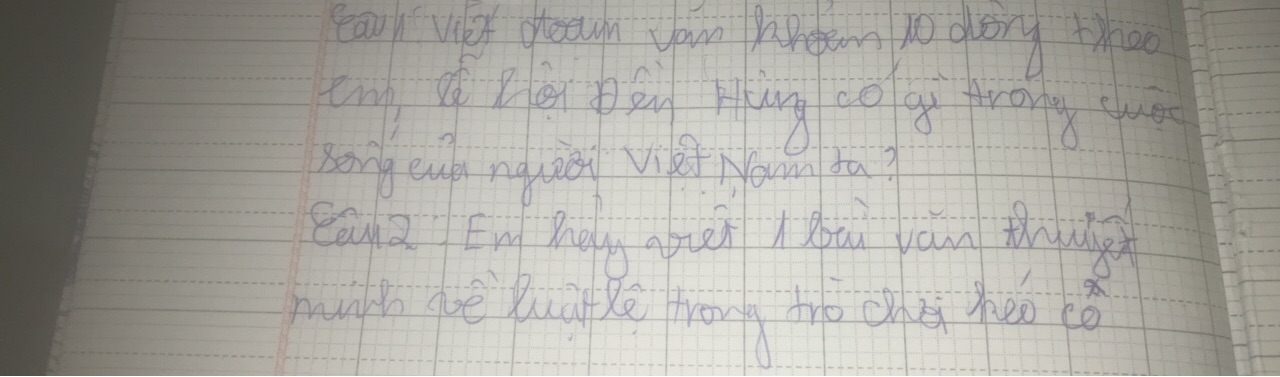 Câu 1 Viết đoạn văn khoản 10 dòng theo
em, lễ hội Đền Hùng có gì trong cuộc
sống của người Việt Nam ta?
Câu 2. Em hãy viết 1 bài văn thuyết
minh về luật lệ trong trò chơi kéo cỏ